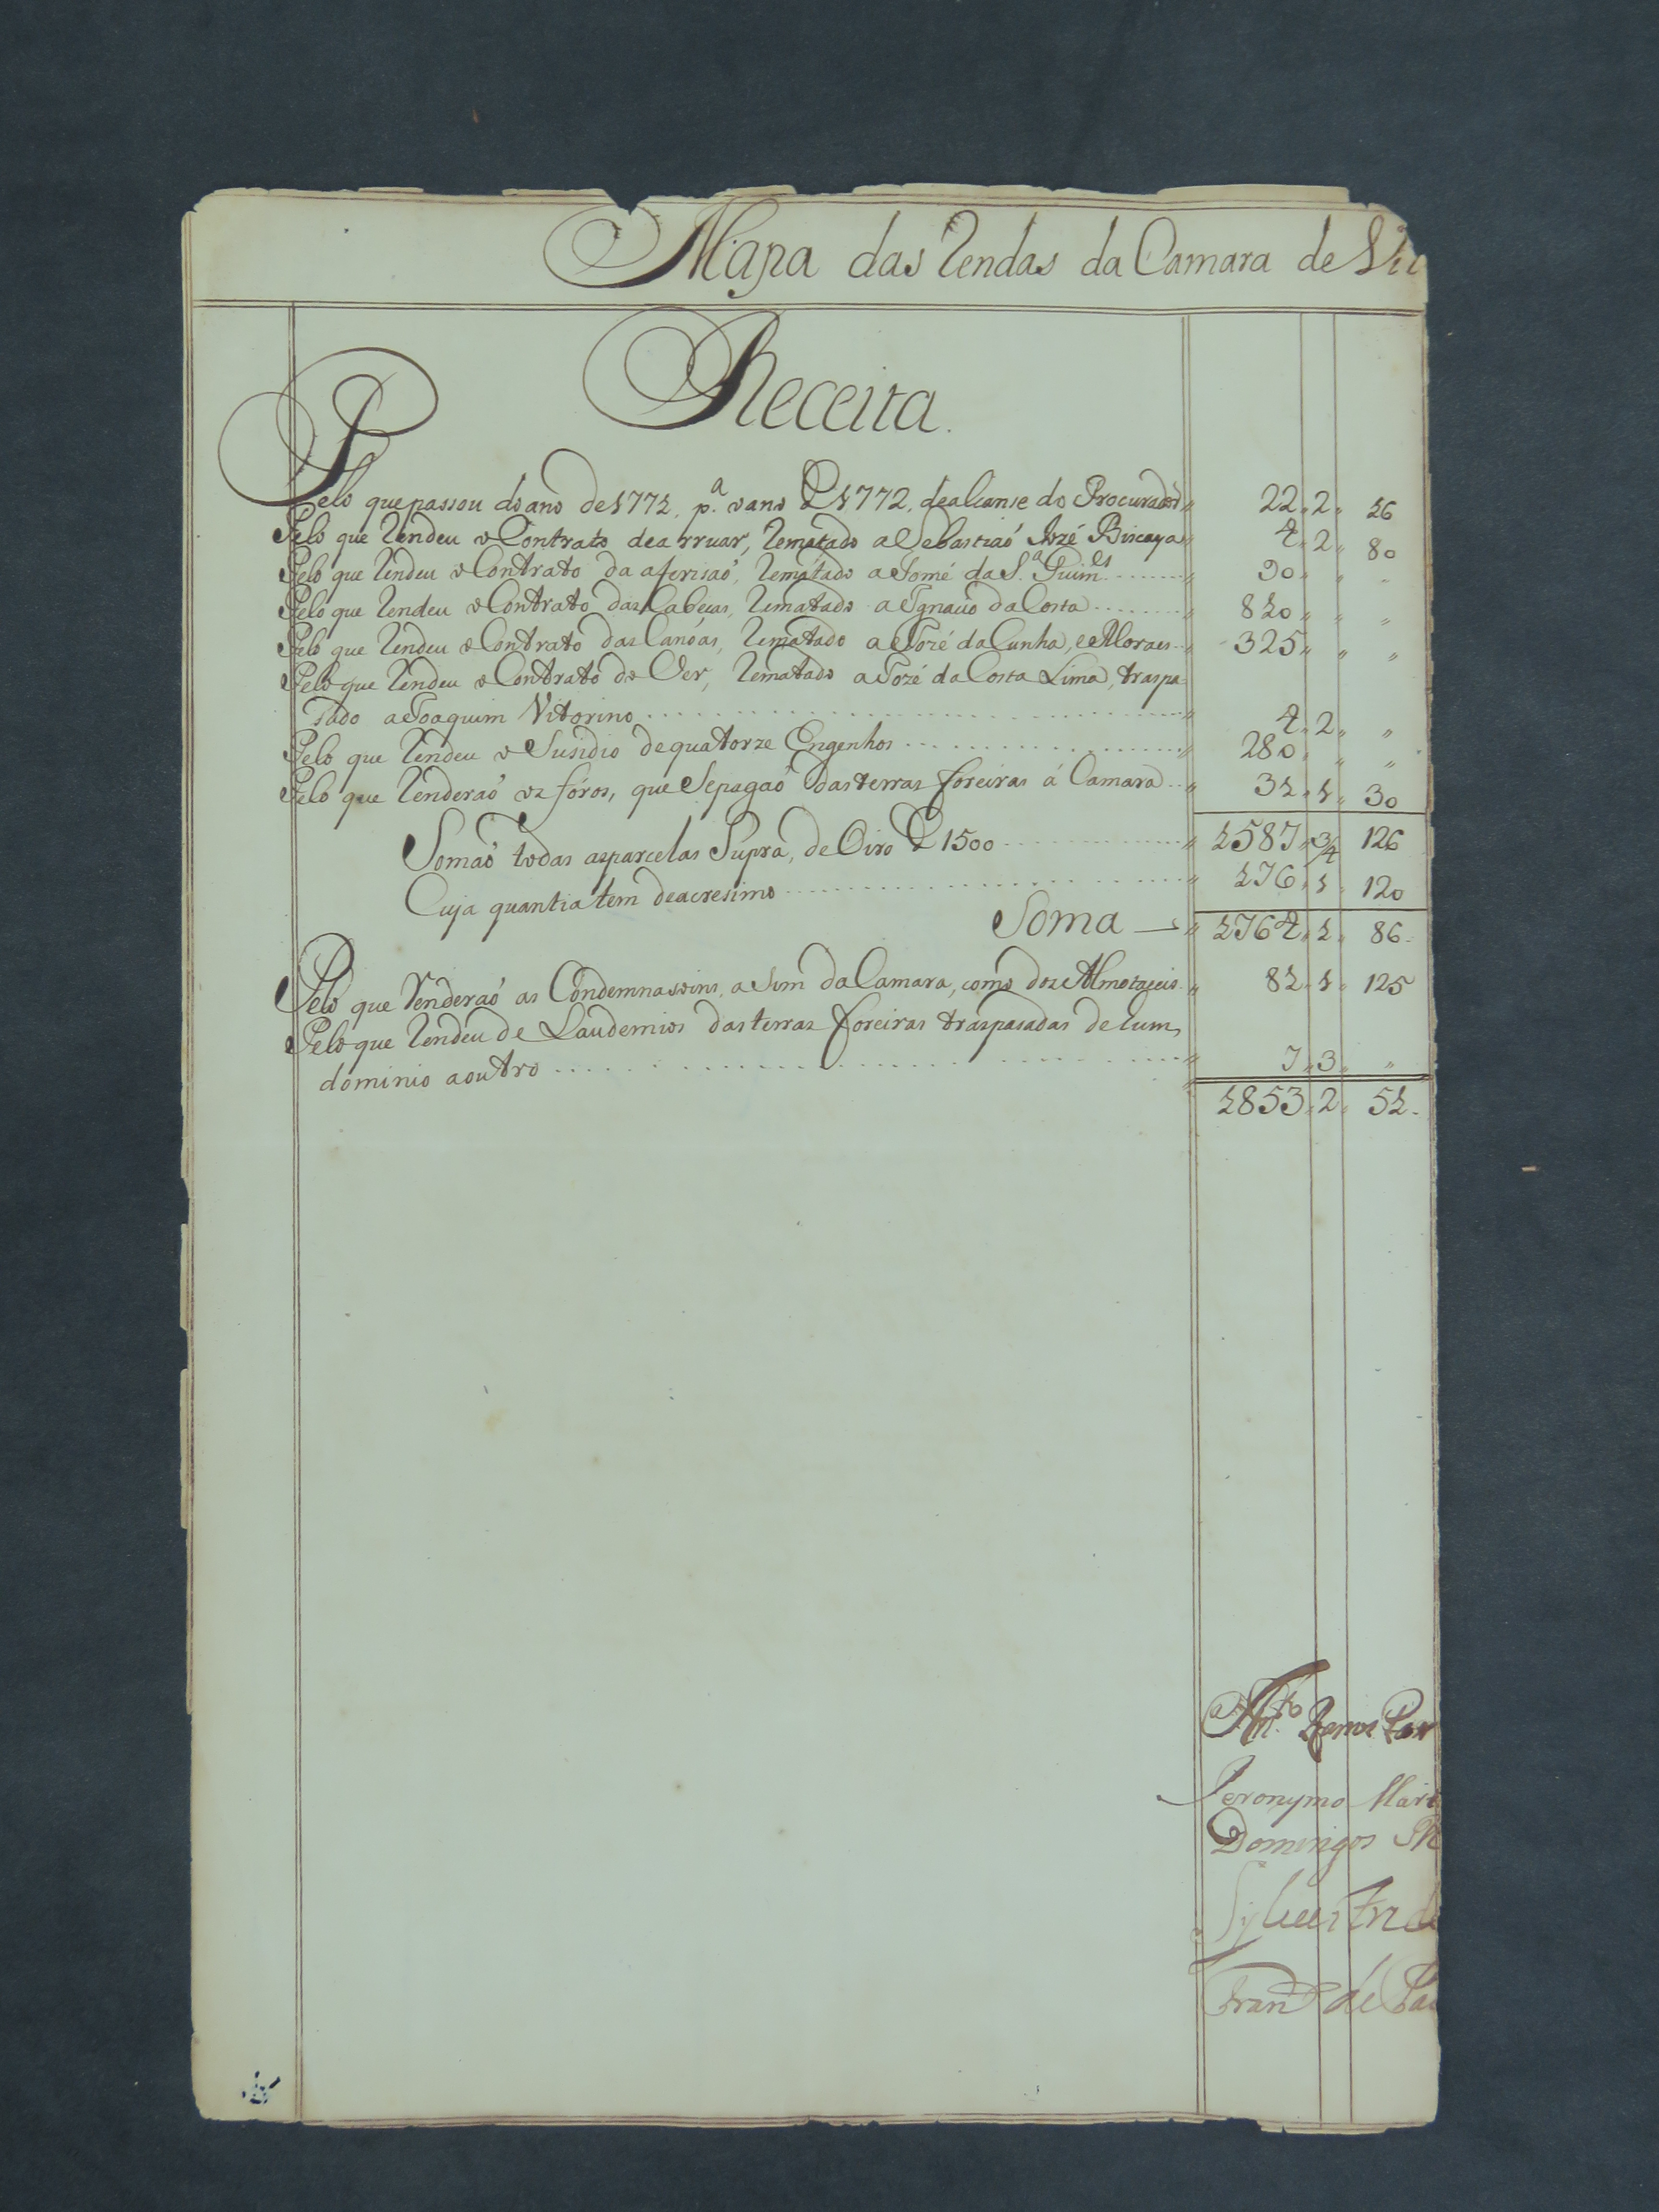 Mapa das Rendas da Camara de Vil
Receita.
Pelo que passou do ano de 1771. p.ª o ano de 1772, de alcanse do Procurador " 22 " 2 " 16
Pelo que Rendeu o Contrato de arruar, Rematado a Sebastiaõ Jozé Biscaya " 4 " 2 " 80
Pelo que Rendeu o Contrato da aferisaõ, Rematado a Tomé da S.ª Guim.es " 90 " " "
Pelo que Rendeu o Contrato das Cabeças, Rematado a Ignacio da Costa " 810 " " "
Pelo que Rendeu o Contrato das Canôas, Rematado a Jozé da Cunha, e Moraes " 325 " " "
Pelo que Rendeu o Contrato do Ver, Rematado a Jozé da Costa Lima, traspa
sado a Joaquim Vitorino " 4 " 2 " "
Pelo que Rendeu o Susidio de quatorze Engenhos " 280 " " "
Pelo que Renderaõ os fóros, que se pagaõ das terras foreiras á Camara " 31 " 1 " 30
Somaõ todas as parcelas Supra, de Oiro de 1500 " 1587 " 3/4 126
Cuja quantia tem de acresimo " 176 " 1 " 120
Soma — " 1764 " 1 " 86
Pelo que Renderaõ as Condemnasoins, a sim da Camara, como dos Almotaceis " 81 " 1 " 125
Pelo que Rendeu de Laudemios das terras foreiras traspasadas de hum
dominio a outro " 7 " 3 " "
1853 " 2 " 51
Ant.º
Jeronymo Mar
Domingos M
Sylvestre de
Fran.co de Pau